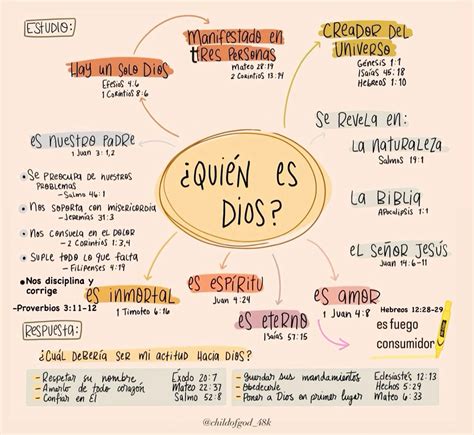 ESTUDIO:
HAY UN SOLO DIOS
Efesios 4:6
1 Corintios 8:6
MANIFESTADO EN
tRES PERSONAS
Mateo 28:19
2 Corintios 13:14
CREADOR DEL
UNIVERSO
Génesis 1:1
Isaías 45:18
Hebreos 1:10
ES NUESTRO PADRE
1 Juan 3:1,2
• SE PREOCUPA DE NUESTROS
PROBLEMAS
- Salmo 46:1
• NOS SOPORTA CON MISERICORDIA
- Jeremías 31:3
• NOS CONSUELA EN EL DOLOR
- 2 Corintios 1:3,4
• SUPLE TODO LO QUE FALTA
- Filipenses 4:19
•Nos disciplina y
corrige
-Proverbios 3:11-12
¿QUIÉN ES
DIOS?
SE REVELA EN:
LA NATURALEZA
Salmos 19:1
LA BIBLIA
Apocalipsis 1:1
EL SEÑOR JESÚS
Juan 14:6-11
ES INMORTAL
1 Timoteo 6:16
ES ESPÍRITU
Juan 4:24
ES ETERNO
Isaías 57:15
ES AMOR
1 Juan 4:8
Hebreos 12:28-29
es fuego
consumidor
RESPUESTA:
¿CUÁL DEBERÍA SER MI ACTITUD HACIA DIOS?
- Respetar su nombre Éxodo 20:7
- Amarlo de todo corazón Mateo 22:37
- Confiar en Él Salmo 52:8
- Guardar sus mandamientos Eclesiastés 12:13
- Obedecerle Hechos 5:29
- Poner a Dios en primer lugar Mateo 6:33
@childofgod_48k